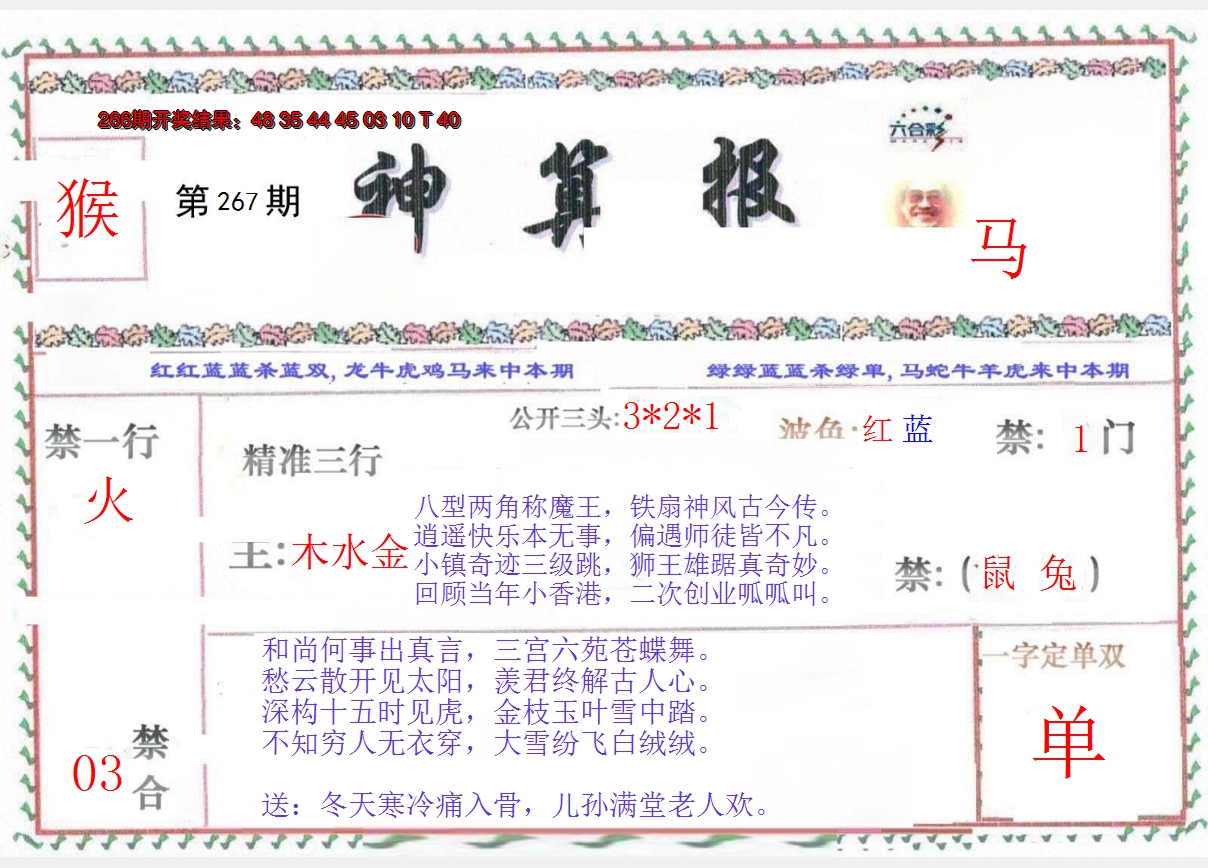 266期开奖结果：48 35 44 45 03 10 T 40
六合彩
猴
第 267 期
神算报
马
红红蓝蓝杀蓝双, 龙牛虎鸡马来中本期
绿绿蓝蓝杀绿单, 马蛇牛羊虎来中本期
禁一行
火
精准三行
主: 木水金
公开三头: 3*2*1
波色: 红 蓝
禁: 1 门
八型两角称魔王，铁扇神风古今传。
逍遥快乐本无事，偏遇师徒皆不凡。
小镇奇迹三级跳，狮王雄踞真奇妙。
回顾当年小香港，二次创业呱呱叫。
禁: (鼠 兔)
和尚何事出真言，三宫六苑苍蝶舞。
愁云散开见太阳，羡君终解古人心。
深构十五时见虎，金枝玉叶雪中踏。
不知穷人无衣穿，大雪纷飞白绒绒。
送：冬天寒冷痛入骨，儿孙满堂老人欢。
03
禁合
一字定单双
单